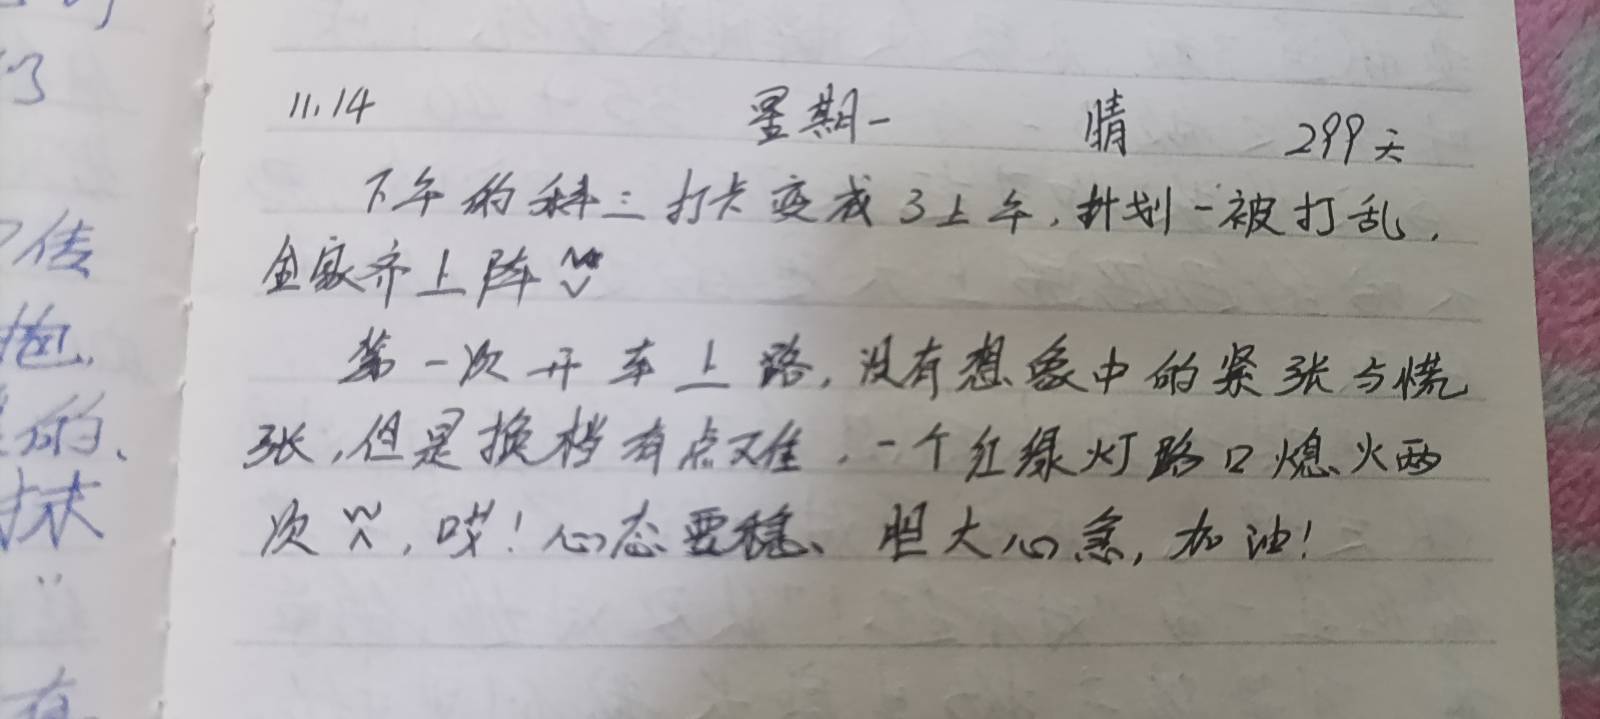 11.14 星期一 晴 299天
下午的科三打卡变成了上午,计划一被打乱,
全家齐上阵
第一次开车上路,没有想象中的紧张与慌
张,但是换档有点难,一个红绿灯路口熄火两
次,哎!心态要稳、胆大心急,加油!
传
抱.
的、
扶
有